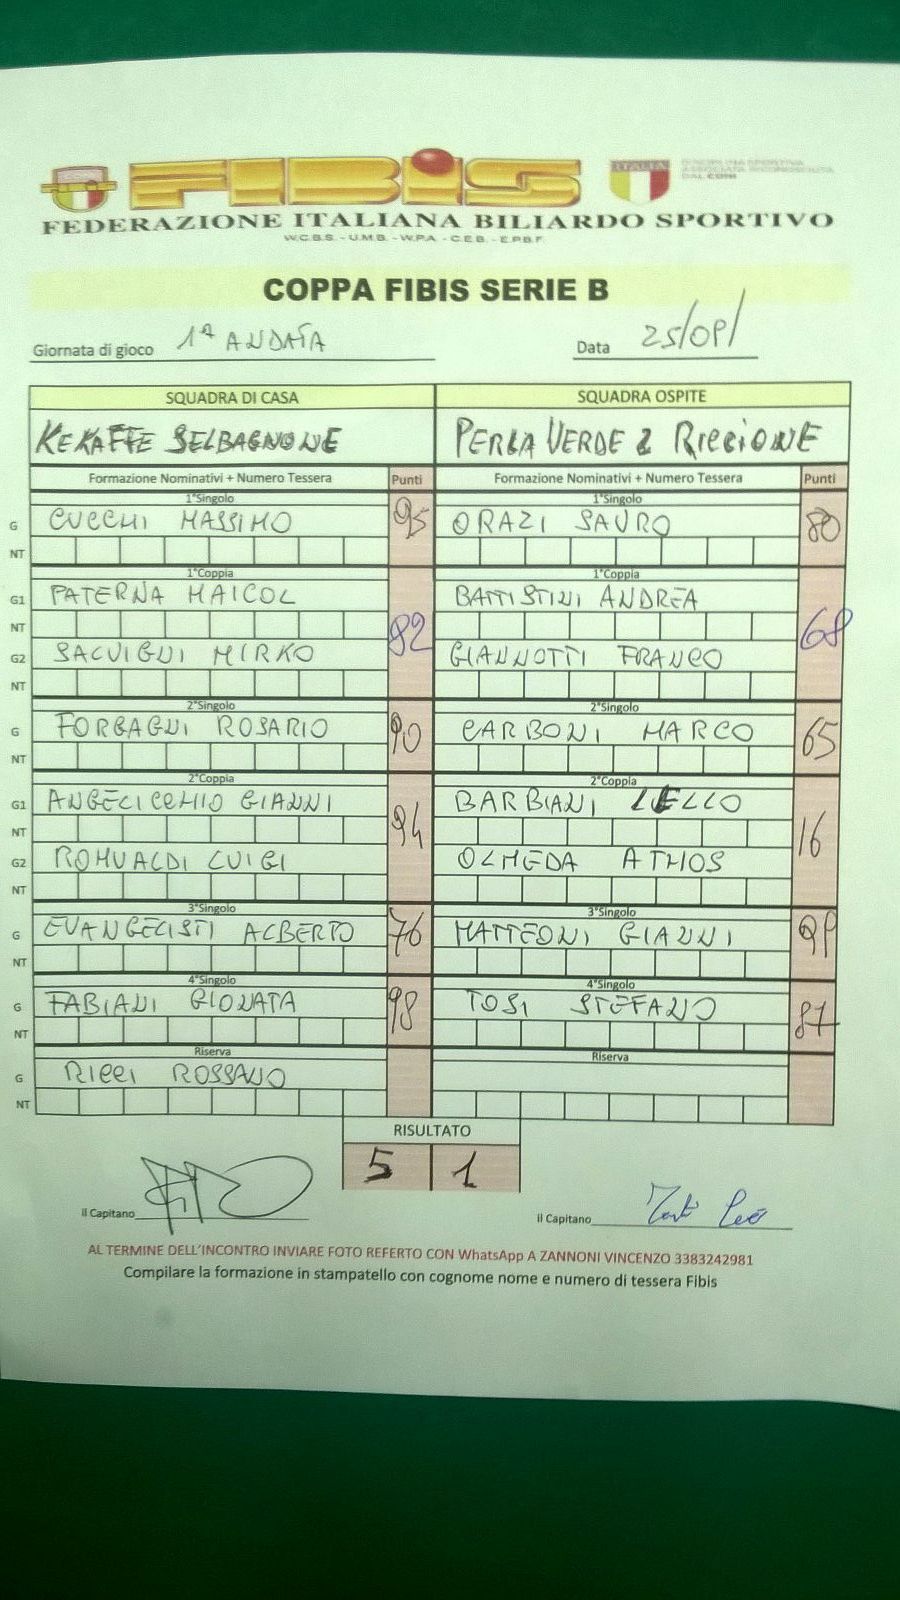 FIBIS
ITALIA
DISCIPLINA SPORTIVA
ASSOCIATA RICONOSCIUTA
DAL CONI
FEDERAZIONE ITALIANA BILIARDO SPORTIVO
W.C.B.S. - U.M.B. - W.P.A. - C.E.B. - E.P.B.F.
COPPA FIBIS SERIE B
Giornata di gioco 1ª ANDATA Data 25/09/
SQUADRA DI CASA SQUADRA OSPITE
KEKAFFE SELBAGNONE PERLA VERDE 2 RICCIONE
Formazione Nominativi + Numero Tessera Punti Formazione Nominativi + Numero Tessera Punti
1°Singolo 1°Singolo
G CUCCHI MASSIMO 95 ORAZI SAURO 80
NT
1°Coppia 1°Coppia
G1 PATERNA MAICOL BATTISTINI ANDREA
NT 82 68
G2 SALVIGNI MIRKO GIANNOTTI FRANCO
NT
2°Singolo 2°Singolo
G FORGAGNI ROSARIO 90 CARBONI MARCO 65
NT
2°Coppia 2°Coppia
G1 ANGELICCHIO GIANNI BARBIANI LELLO
NT 94 16
G2 ROMUALDI LUIGI OLMEDA ATHOS
NT
3°Singolo 3°Singolo
G EVANGELISTI ALBERTO 76 MATTEONI GIANNI 99
NT
4°Singolo 4°Singolo
G FABIANI GIONATA 98 TOSI STEFANO 87
NT
Riserva Riserva
G RICCI ROSSANO
NT
RISULTATO
5 1
Il Capitano Il Capitano
AL TERMINE DELL'INCONTRO INVIARE FOTO REFERTO CON WhatsApp A ZANNONI VINCENZO 3383242981
Compilare la formazione in stampatello con cognome nome e numero di tessera Fibis